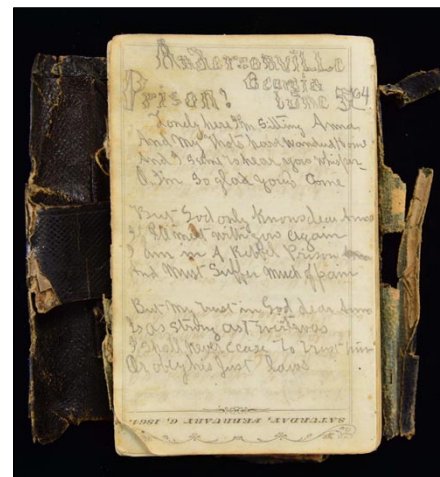 Andersonville
Georgia
Prison! June 64
Lonely here I'm sitting Anna
And My thots have wandered home
And I seem to hear your whisper
O. I'm so glad you's come
But God only knows dear Anna
met with you again
I am in A Rebel Prison
And Must Suffer Much of pain
But My trust in God dear Anna
Is as strong as
I shall never cease to trust him
Or obey his just laws
SATURDAY, FEBRUARY 6, 1864.